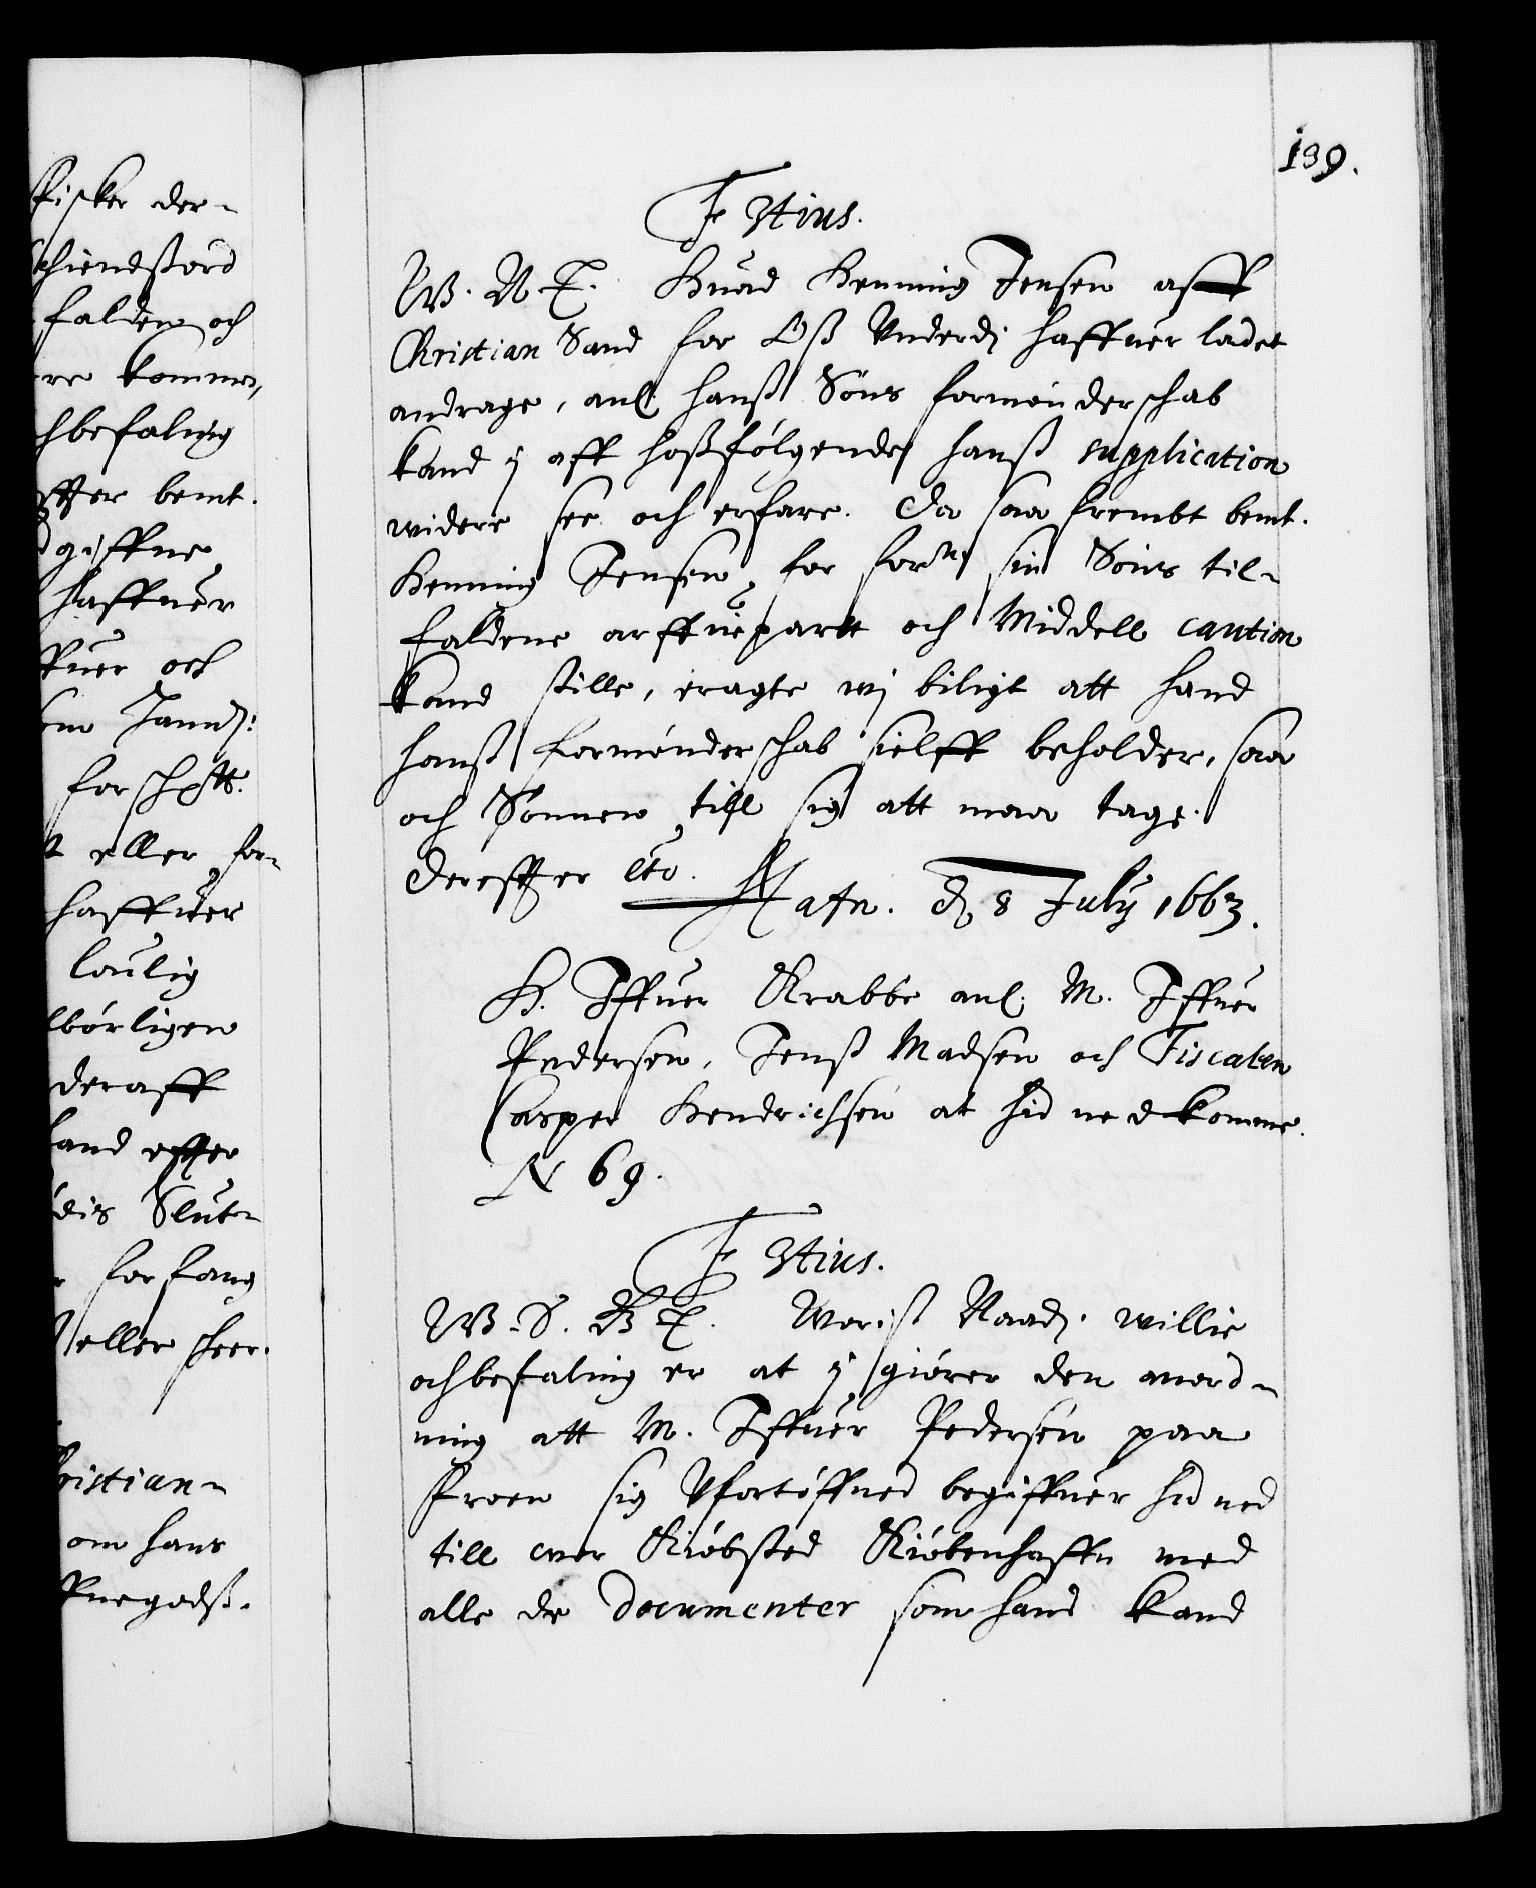 fisker der-
chiendßord
falden och
re komme,
hbefaling
effter bemt.
giffne
haffuer
och
Jannd:
for
t eller for-
haffuer
loulig
lbörligen
deraff
and effter
dis Slut-
forfang
eller skeer.
ristian-
om hans
fuegodß.
139.
F 3tius.
W. N. T. Huad Henning Jensen aff
Christian Sand for Oß Underd: haffuer ladet
andrage, anl: hanß Söns formönderschab
kand i aff hoßfölgende hanß supplication
widere see och erfare. Da saa frembt bemt.
Henning Jensen for forne sin Söns til-
faldene arffuepartt och Middell caution
kand stille, eragte wi biligt att hand
hanß formönderschab sielff beholder, saa
och Sönnen till sig att maa tage.
dereffter etc. Hafn. d. 8 July 1663.
H. Iffuer Krabbe anl: M. Iffuer
Pedersen, Jenß Madsen och Fiscalen
Casper Hendrichsen at hid nedkomme.
N 69.
F 3tius.
W. S. G. T. Wor ist Naad: willie
och befaling er at i giörer den anord-
ning att M. Iffuer Pedersen paa
sig Ufortöffued begiffuer hid ned
till wor Kiöbsted Kiöbenhaffn med
alle de documenter som hand kand